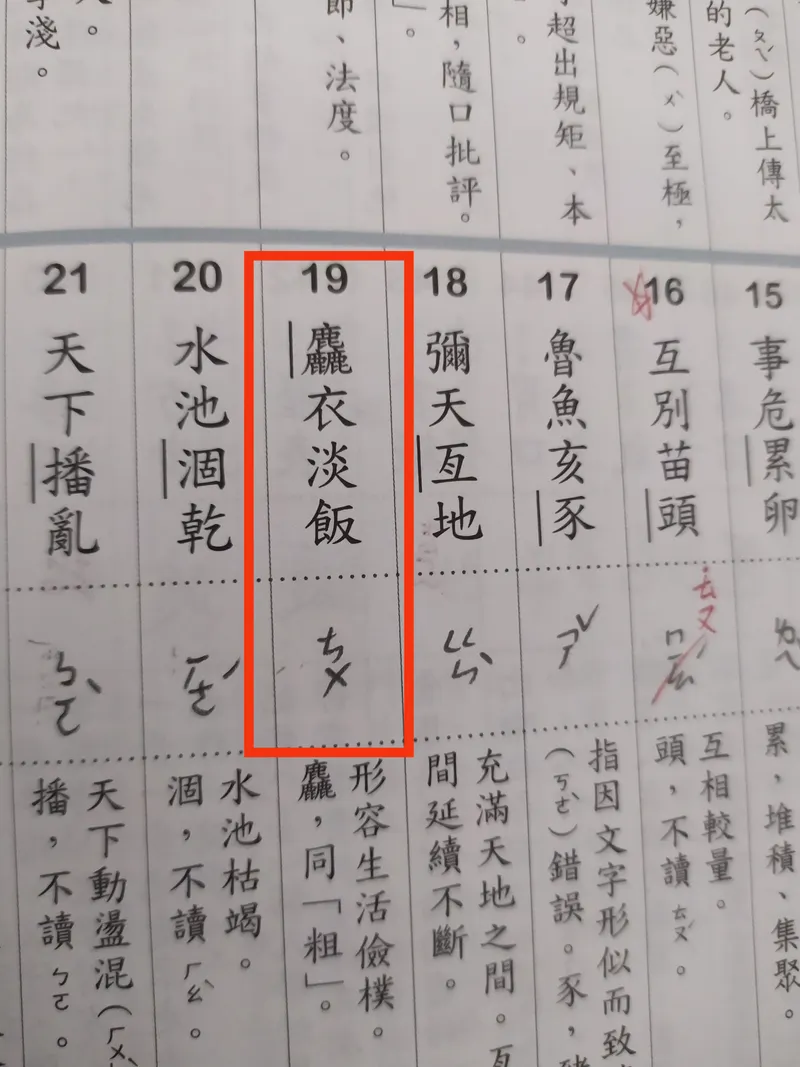 (ㄆㄧˇ)橋上傳太
的老人。
嫌惡(ㄨˋ)至極,
超出規矩、本
。
相,隨口批評。
」。
節、法度。
淺。
15
事危累卵
累,堆積、集聚。
16
互別苗頭
ㄊㄡ
互相較量。
頭,不讀ㄊㄡˊ。
17
魯魚亥豕
ㄕˇ
指因文字形似而致
(ㄎㄜˋ)錯誤。豕,豬
18
彌天亙地
ㄍㄣˋ
充滿天地之間。亙
間延續不斷。
19
麤衣淡飯
ㄘㄨ
形容生活儉樸。
麤,同「粗」。
20
水池涸乾
ㄏㄜˊ
水池枯竭。
涸,不讀ㄏㄠˋ。
21
天下播亂
ㄅㄛˋ
天下動盪混(ㄏㄨㄣˋ
播,不讀ㄅㄛ。